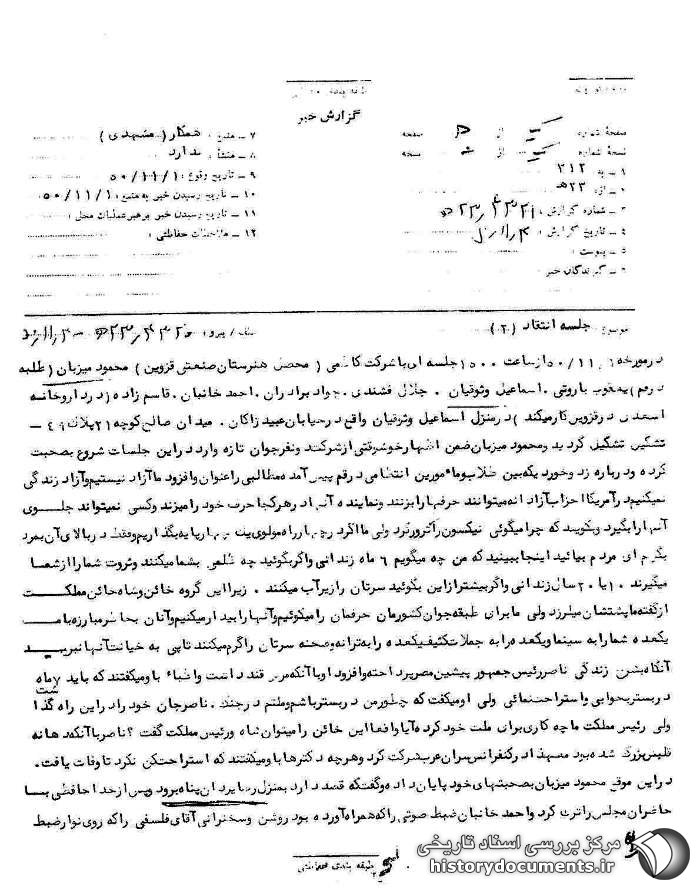 گزارش خبر
صفحهٔ شماره یک از ۳ صفحه
نسخهٔ شماره یک از نسخه
۱ ـ به ۳۱۲
۲ ـ از ۲۳ه‍
۳ ـ شماره گزارش
۴ ـ تاریخ گزارش
۵ ـ پیوست
۶ ـ گیرندگان خبر
۷ ـ منبع همکار (مشهدی)
۸ ـ منشأ ندارد
۹ ـ تاریخ وقوع ۵۰/۱۱/۱
۱۰ ـ تاریخ رسیدن خبر به منبع ۵۰/۱۱/۱
۱۱ ـ تاریخ رسیدن خبر برهبر عملیات محل
۱۲ ـ ملاحظات حفاظتی
موضوع جلسه انتقاد (۲۰) عطف / پیرو
در مورخه ۵۰/۱۱/۱ از ساعت ۱۵۰۰ جلسه ای با شرکت کاظمی (محصل هنرستان صنعتی قزوین) محمود میزبان (طلبه
در قم) یعقوب باروتی . اسماعیل وثوقیان . جلال فشندی . جواد برادران . احمد خانبان . قاسم زاده (در داروخانه
اسعدی در قزوین کار میکند) در منزل اسماعیل وثوقیان واقع در خیابان عبید زاکان . میدان صالح کوچه ۲۱ پلاک ۴۹ ـ
تشکیل گردید و محمود میزبان ضمن اظهار خوشوقتی از شرکت دو نفر جوان تازه وارد در این جلسات شروع بصحبت
کرده و درباره زد و خورد یکه بین طلاب و مأمورین انتظامی در قم پیش آمده مطالبی را عنوان و افزود ما آزاد نیستیم و آزاد زندگی
نمیکنیم در آمریکا احزاب آزادانه میتوانند حرفها را بزنند و نماینده آنها در هر کجا حرف خود را میزند و کسی نمیتواند جلوی
آنها را بگیرد و بگوید که چرا میگوئی نیکسون را ترور کرد ولی ما اگر در چهار راه مولوی یک چهار پایه بگذاریم و فقط در بالای آن بمردم
بگوئیم ای مردم بیائید اینجا ببینید که من چه میگویم ۶ ماه زندانی و اگر بگوئید چه ظلمی بشما میکنند و ثروت شما را از شما
میگیرند ۱۰ یا ۲۰ سال زندانی و اگر بیشتر از این بگوئید سرتان را زیر آب میکنند . زیرا این گروه خائن و شاه خائن مملکت
از گفته ما پشتشان میلرزد ولی ما برای طبقه جوان کشورمان حرفمان را میگوئیم و آنها را بیدار میکنیم و آنان بخاطر مبارزه با ما
یکعده شما را به سینما و یکعده را به جملات کثیف یکعده را به ترانه و صحنه سرتان را گرم میکنند تا پی به خیانت آنها نبرید
آنگاه بشرح زندگی ناصر رئیس جمهور پیشین مصر پرداخته و افزود او با آنکه مرض قند داشت و اطباء باو میگفتند که باید ۷ ماه
در بستر بخوابی و استراحت نمائی ولی او میگفت که چطور من در بستر باشم و ملتم در جنگ . ناصر جان خود را در این راه گذاشت
ولی رئیس مملکت ما چه کاری برای ملت خود کرده آیا واقعا این خائن را میتوان شاه و رئیس مملکت گفت ؟ ناصر با آنکه دهانه
قلبش بزرگ شده بود معهذا در کنفرانس سران عرب شرکت کرد و هر چه دکترها باو میگفتند که استراحت کن نکرد تا وفات یافت .
در این موقع محمود میزبان بصحبتهای خود پایان داده و گفت که قصد دارد بمنزل رضا یزدان پناه برود و پس از خداحافظی با
حاضران مجلس را ترک کرد و احمد خانبان ضبط صوتی را که همراه آورده بود روشن و سخنرانی آقای فلسفی را که روی نوار ضبط
طبقه بندی حفاظتی
مرکز بررسی اسناد تاریخی
historydocuments.ir